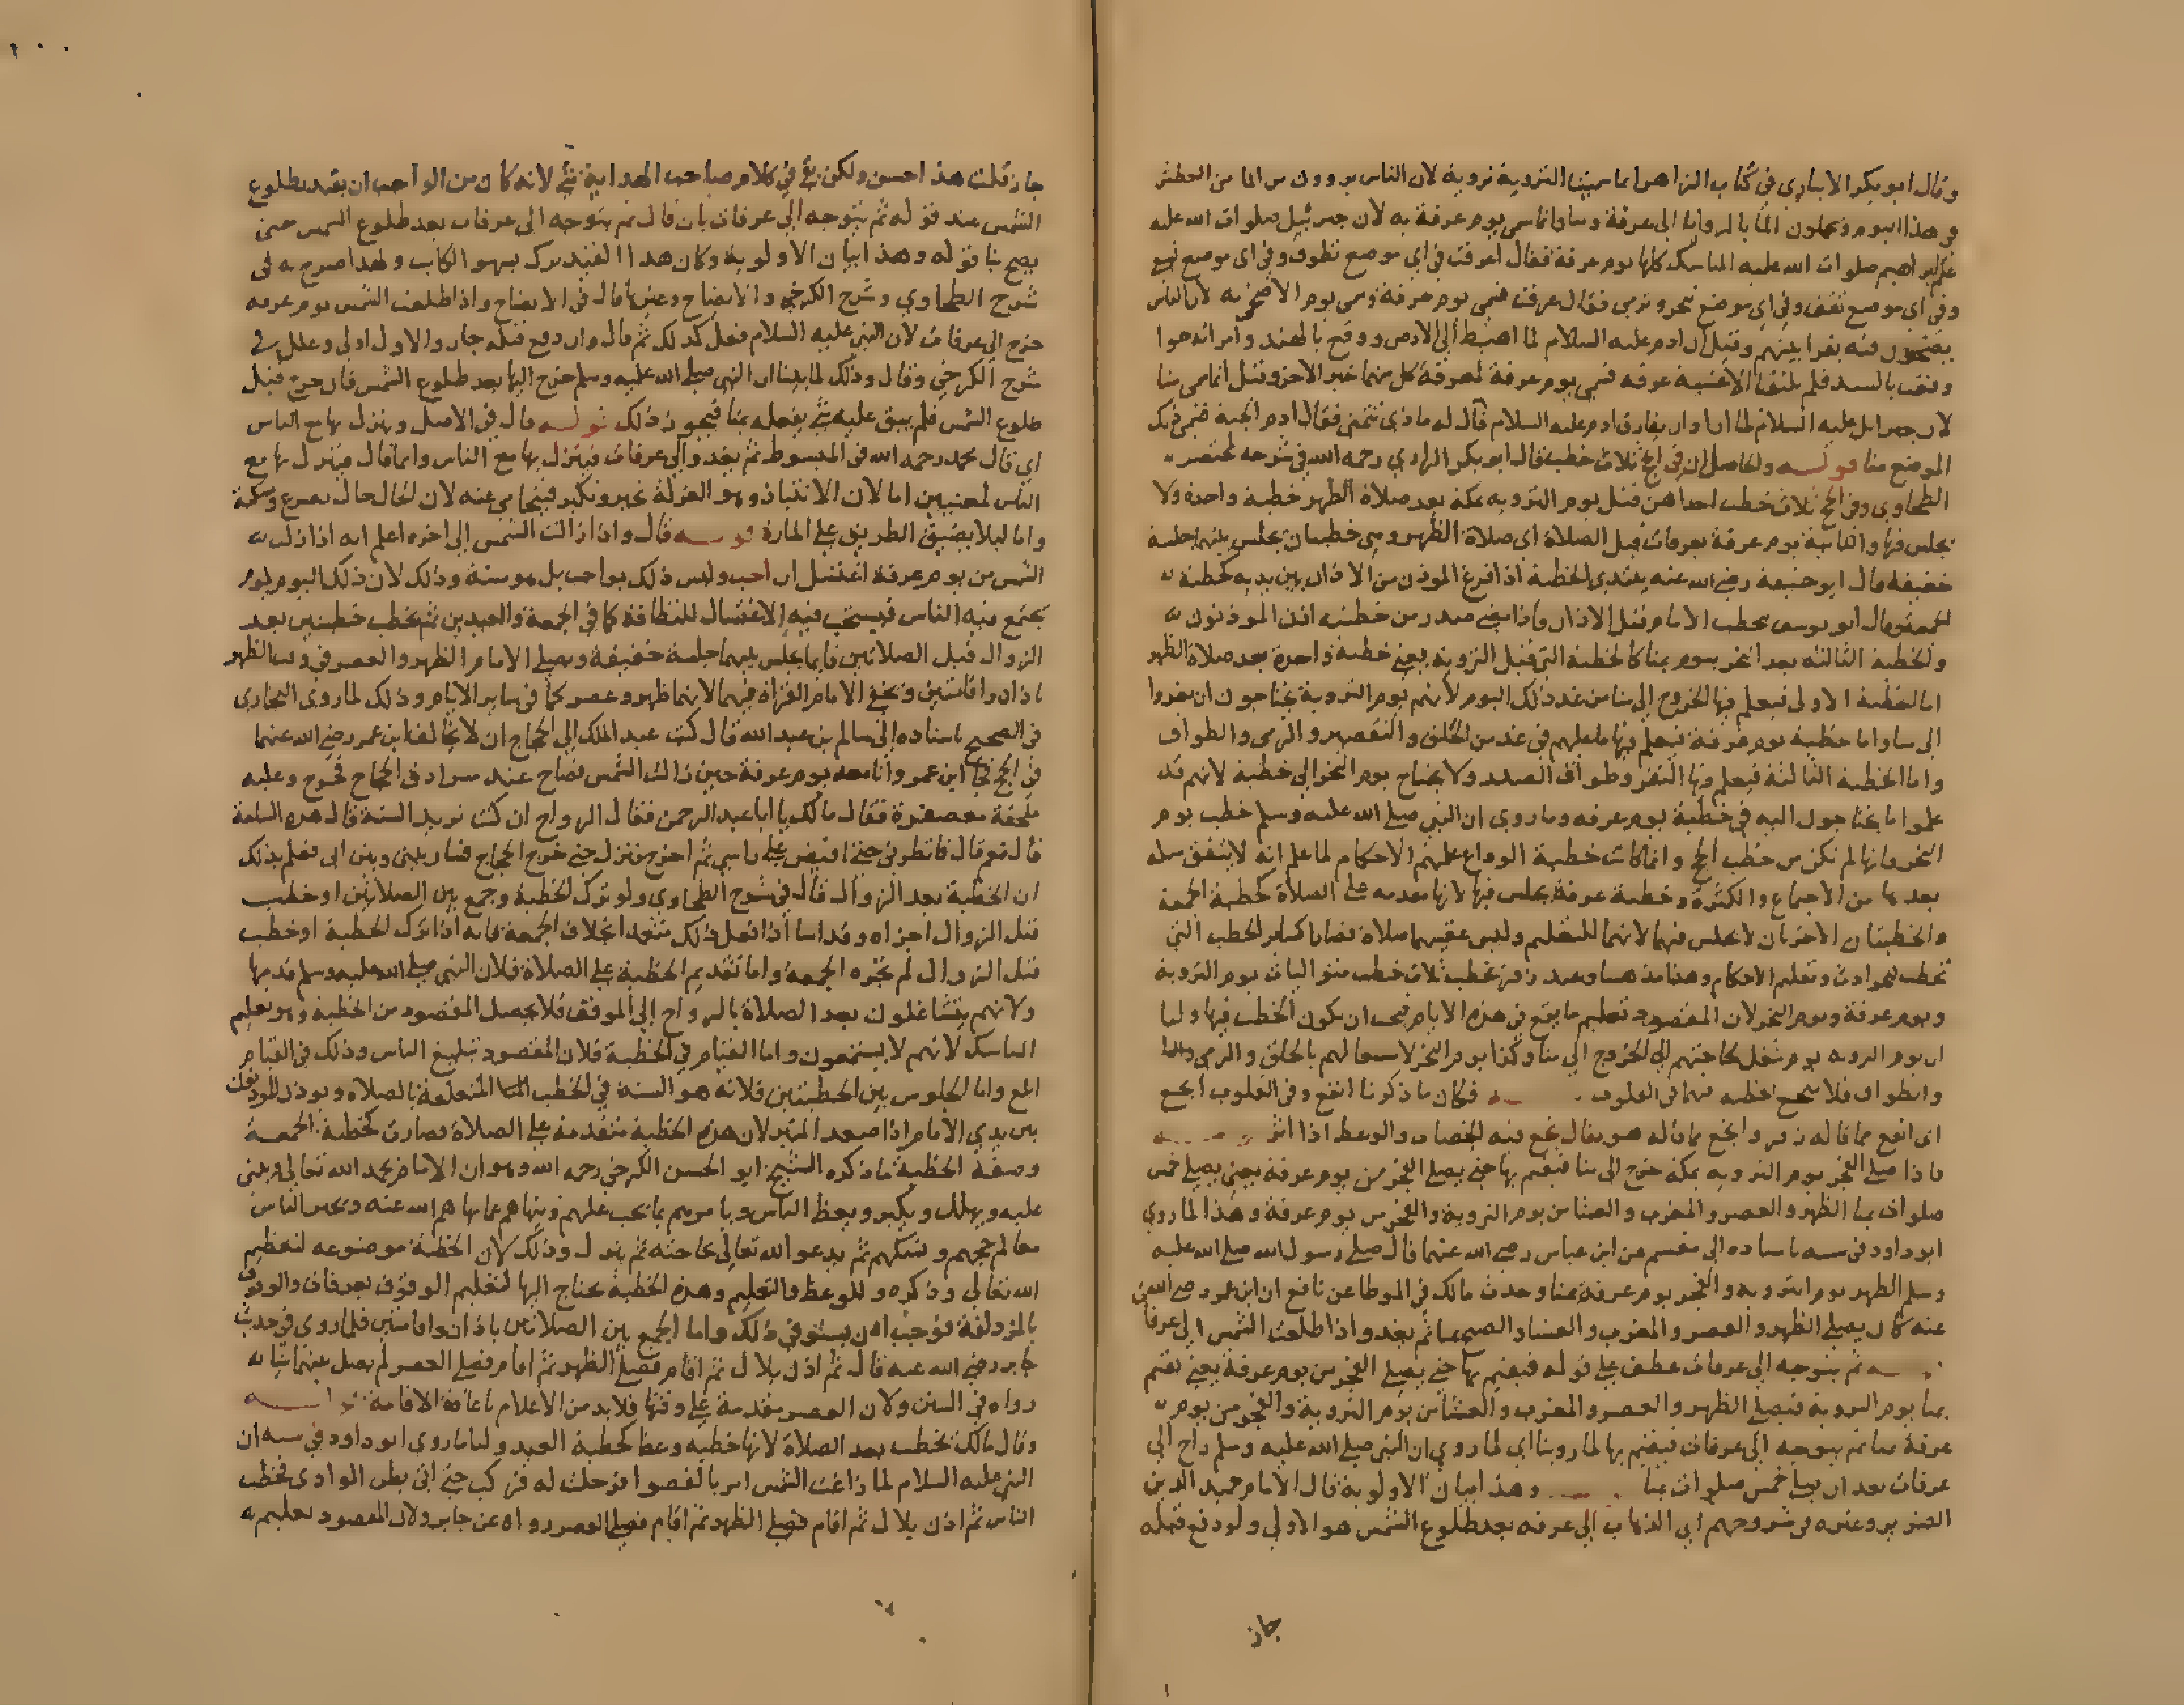 وقال ابو بكر الانباري في كتاب الزاهر انما سميت التروية تروية لان الناس يروون من الما من العطش
في هذا اليوم ويحملون الما بالروايا الى عرفة ومنا وانما سمي يوم عرفة به لان جبرئيل صلوات الله عليه
علم ابراهيم صلوات الله عليه المناسك كلها يوم عرفة فقال اعرفت في اي موضع تطوف وفي اي موضع تسع
وفي اي موضع تقف وفي اي موضع تنحر وترمي فقال عرفت فسمي يوم عرفة وسمي يوم الاضحى به لان الناس
يضحون فيه بقرابينهم وقيل ان ادم عليه السلام لما اهبط الى الارض ووقع بالهند وامراته حوا
فلم يلتقيا الا عشية عرفه فسمي يوم عرفة لمعرفة كل منهما خبر الاخر وقيل انما سمي منا
لان جبرايل عليه السلام لما اراد ان يفارق ادم عليه السلام قال له ماذى تتمنى فقال ادم الجنة فسمي ذلك
الموضع منا قولـه والحاصل ان في الحج ثلاث خطب قال ابو بكر الرازي رحمه الله في شرحه لمختصر
الطحاوي وفي الحج ثلاث خطب احداهن قبل يوم التروية بمكة بعد صلاة الظهر خطبة واحدة ولا
يجلس فيها والثانية يوم عرفة بعرفات قبل الصلاة اى صلاة الظهر وهي خطبتان يجلس بينهما جلسة
خفيفة قال ابو حنيفة رضي الله عنه يبتدي الخطبة اذا فرغ الموذن من الاذان بين يديه كخطبة
الجمعة وقال ابو يوسف يخطب الامام قبل الاذان فاذا مضى صدر من خطبته اذن الموذنون
والخطبة الثالثة بعد النحر بيوم بمنا كالخطبة التي قبل التروية يعني خطبة واحدة بعد صلاة الظهر
اما الخطبة الاولى فيعلم فيها الخروج الى منا من غد ذلك اليوم لانهم يوم التروية يحتاجون ان يغدوا
الى منا واما خطبة يوم عرفة فيعلم فيها ما عليهم في غد من الحلق والتقصير والرمي والطواف
واما الخطبة الثالثة فيعلم فيها النفر وطواف الصدر ولا يحتاج يوم النحر الى خطبة لانهم قد
علموا ما يحتاجون اليه في خطبة يوم عرفه وما روى ان النبي صلى الله عليه وسلم خطب يوم
النحر فانها لم تكن من خطب الحج وانما كانت خطبة الوداع علمهم الاحكام لما علم انه لا يتفق مثله
بعدها من الاجتماع والكثرة وخطبة عرفة يجلس فيها لانها مقدمه على الصلاة كخطبة الجمعة
والخطبتان الاخرتان لا يجلس فيهما لانهما للتعليم وليس عقيبهما صلاة فصارا كساير الخطب التي
تخطب للحوادث وتعليم الاحكام وهذا مذهبنا وعند زفر يخطب ثلاث خطب متواليات يوم التروية
ويوم عرفة ويوم النحر لان المقصود تعليم ما يقع في هذه الايام فيجب ان يكون الخطب فيها ولنا
ان يوم الترويه يوم شغل لحاجتهم الى الخروج الى منا وكذا يوم النحر لاشتغالهم بالحلق والرمي
والطواف فلا تنجع الخطبة فيهما في القلوب فكان ما ذكرنا انفع وفي القلوب انجع
اى انفع مما قاله زفر وانجع مما قاله هو يقال نجع فيه الخضاب والوعظ اذا اثر
فاذا صلى الفجر يوم الترويه بمكة خرج الى منا فيقيم بها حتى يصلي الفجر من يوم عرفة يعني يصلي خمس
صلوات بمنا الظهر والعصر والمغرب والعشا من يوم التروية والفجر من يوم عرفة وهذا لما روي
ابو داود في سننه باسناده الى مقسم عن ابن عباس رضي الله عنهما قال صلى رسول الله صلى الله عليه
وسلم الظهر يوم التروية والفجر يوم عرفة بمنا وحدث مالك في الموطا عن نافع ان ابن عمر رضي الله
عنه كان يصلي الظهر والعصر والمغرب والعشاء والصبح بمنا ثم يغدو اذا طلعت الشمس الى عرفات
ثم يتوجه الى عرفات عطف على قوله فيقيم بها حتى يصلي الفجر من يوم عرفة يعني يقيم
بمنا يوم التروية فيصلي الظهر والعصر والمغرب والعشا من يوم التروية والفجر من يوم
عرفة بمنا ثم يتوجه الى عرفات فيقيم بها لما روينا اي لما روي ان النبي صلى الله عليه وسلم راح الى
عرفات بعد ان يصلي خمس صلوات بمنا وهذا بيان الاولوية قال الامام حميد الدين
الضرير وغيره في شروحهم اي الذهاب الى عرفه بعد طلوع الشمس هو الاولى ولو دفع قبله
جاز
جاز قلت هذا احسن ولكن بقي في كلام صاحب الهداية شي لانه كان من الواجب ان يقيد بطلوع
الشمس عند قوله ثم يتوجه الى عرفات بان قال ثم يتوجه الى عرفات بعد طلوع الشمس حتى
يصح بنا قوله وهذا بيان الاولوية وكان هذا القيد ترك بسهو الكاتب ولهذا صرح به في
شرح الطحاوي وشرح الكرخي والايضاح وغيرها قال في الايضاح واذا طلعت الشمس يوم عرفه
خرج الى عرفات لان النبي عليه السلام فعل كذلك ثم قال وان دفع قبله جاز والاول اولى وعلل في
شرح الكرخي وقال وذلك لما بينا ان النبي صلى الله عليه وسلم خرج اليها بعد طلوع الشمس فان خرج قبل
طلوع الشمس فلم يبق عليه شي يفعله بمنا فيجوز ذلك قولـه قال في الاصل وينزل بها مع الناس
اي قال محمد رحمه الله في المبسوط ثم يغدوا الى عرفات فينزل بها مع الناس وانما قال فينزل بها مع
الناس لمعنيين اما لان الانتباذ وهو العزلة تجبر وتكبر فيتحامى عنه لان الحال حال تضرع ومسكنة
واما ليلا يضيق الطريق على المارة قولـه قال واذا زالت الشمس الى اخره اعلم انه اذا زالت
الشمس من يوم عرفة اغتسل ان احب وليس ذلك بواجب بل هو سنة وذلك لان ذلك اليوم يوم
يجتمع فيه الناس فيستحب فيه الاغتسال للنظافة كما في الجمعة والعيدين ثم يخطب خطبتين بعد
الزوال قبل الصلاتين قايما يجلس بينهما جلسة خفيفة ويصلي الامام الظهر والعصر في وقت الظهر
باذان واقامتين ويخفي الامام القراة فيهما لانهما ظهر وعصر كما في ساير الايام وذلك لما روى البخاري
في الصحيح باسناده الى سالم بن عبد الله قال كتب عبد الملك الى الحجاج ان لا تخالف ابن عمر رضي الله عنهما
في الحج فجا ابن عمر وانا معه يوم عرفة حين زالت الشمس فصاح عند سرادق الحجاج فخرج وعليه
ملحفة معصفرة فقال مالك يا ابا عبد الرحمن فقال الرواح ان كنت تريد السنة قال هذه الساعة
قال نعم قال فانظرني حتى افيض على راسي ثم اخرج فنزل حتى خرج الحجاج فسار بيني وبين ابي فعلم بذلك
ان الخطبة بعد الزوال قال في شرح الطحاوي ولو ترك الخطبة وجمع بين الصلاتين او خطب
قبل الزوال اجزاه وقد اسا اذا فعل ذلك متعمدا بخلاف الجمعة فانه اذا ترك الخطبة او خطب
قبل الزوال لم تجزه الجمعة واما تقديم الخطبة على الصلاة فلان النبي صلى الله عليه وسلم قدمها
ولانهم يتشاغلون بعد الصلاة بالرواح الى الموقف فلا يحصل المقصود من الخطبة وهو تعليم
المناسك لانهم لا يستمعون واما القيام في الخطبة فلان المقصود تبليغ الناس وذلك في القيام
ابلغ واما الجلوس بين الخطبتين فلانه هو السنة في الخطب المتعلقة بالصلاة ويوذن الموذنون
بين يدي الامام اذا صعد المنبر لان هذه الخطبة متقدمة على الصلاة فصارت كخطبة الجمعـة
وصفة الخطبة ما ذكره الشيخ ابو الحسن الكرخي رحمه الله وهو ان الامام يحمد الله تعالى ويثني
عليه ويهلل ويكبر ويعظ الناس ويامرهم بما يجب عليهم وينهاهم عما نهاهم الله عنه ويخبر الناس
معالم حجهم ونسكهم ثم يدعو الله تعالى بحاجته ثم ينزل وذلك لان الخطبة موضوعه لتعظيم
الله تعالى وذكره وللوعظ والتعليم وهذه الخطبة يحتاج اليها لتعليم الوقوف بعرفات والوقوف
بالمزدلفة فوجب ان يستوفي ذلك واما الجمع بين الصلاتين باذان واقامتين فلما روى في حديث
جابر رضي الله عنه قال ثم اذن بلال ثم اقام فصلى الظهر ثم اقام فصلى العصر لم يصل بينهما شيا
رواه في السنن ولان العصر مقدمة على وقتها فلا بد من الاعلام باعادة الاقامة قولـه
وقال مالك يخطب بعد الصلاة لانها خطبه وعظ كخطبة العيد ولنا ما روى ابو داود في سننه ان
النبي عليه السلام لما زاغت الشمس امر بالقصوا فرحلت له فركب حتى اتى بطن الوادي فخطب
الناس ثم اذن بلال ثم اقام فصلى الظهر ثم اقام فصلى العصر رواه عن جابر ولان المقصود تعليمهم